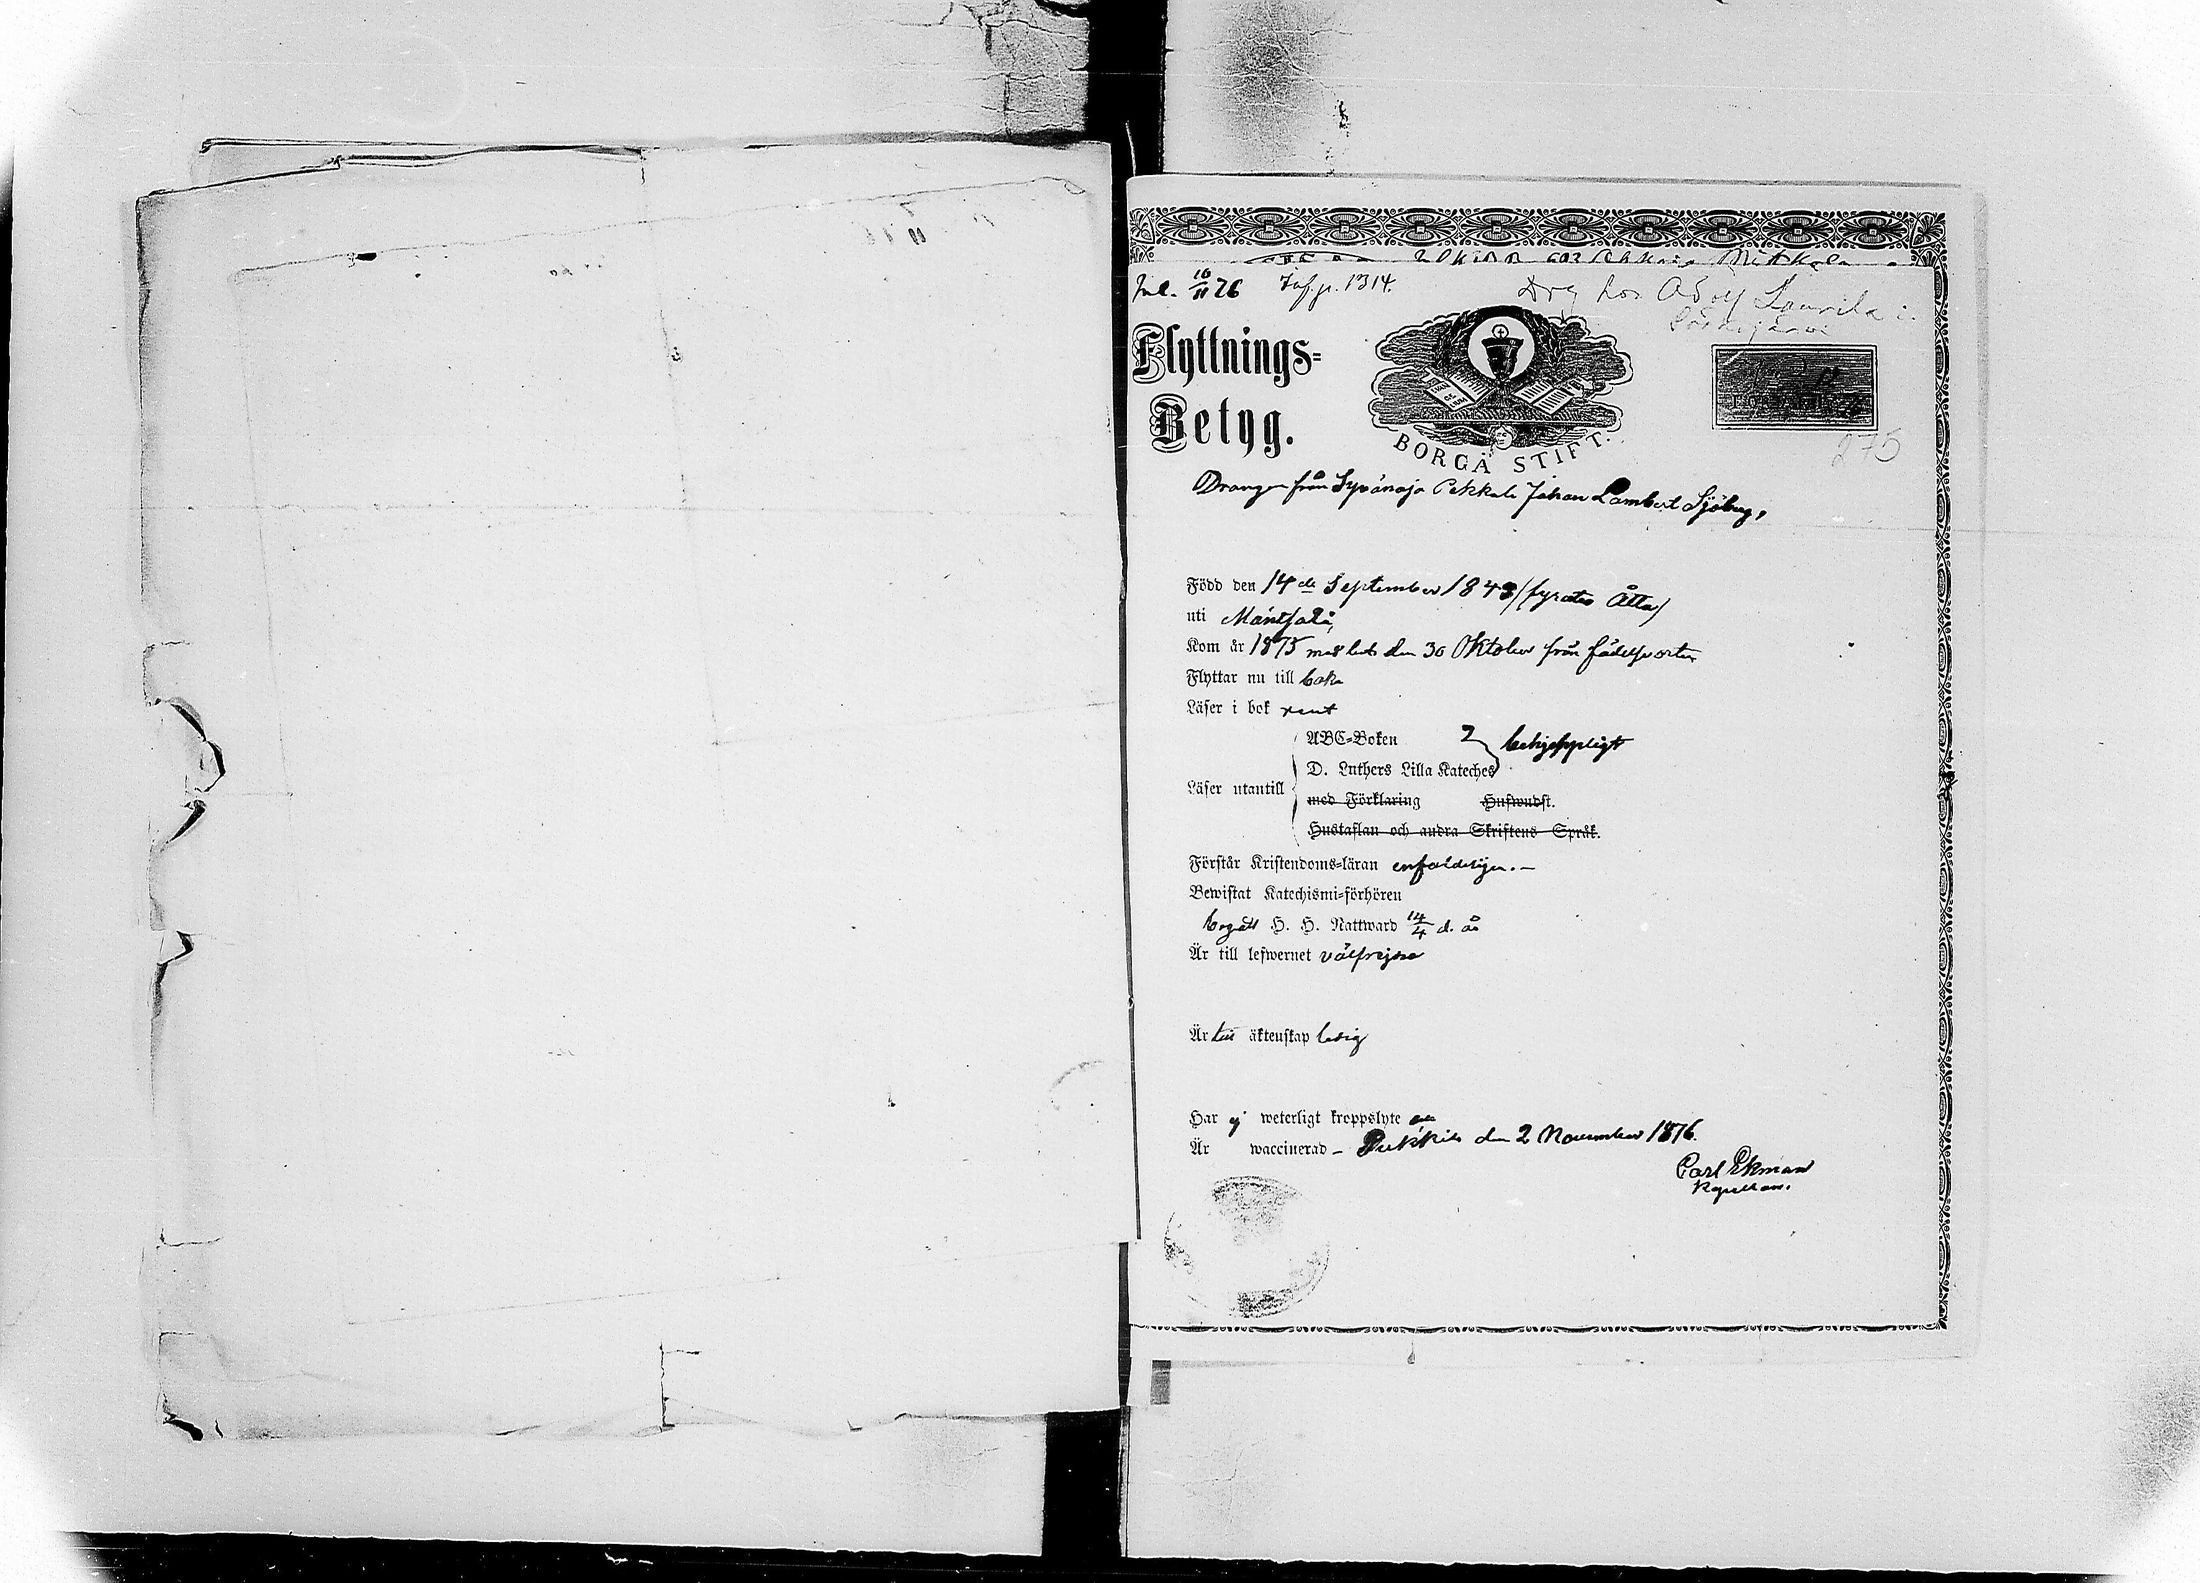 Inl. 10/11 76 Inf. p. 1314.
Drg hos Adolf Laurila i
Flyttnings=
Betyg.
BORGÅ STIFT.
275
Drängen från Syvänoja Pekkala Johan Lambert Sjöberg,
Född den 14de September 1848 (fyratio åtta)
uti Mäntsälä,
Kom år 1875 med bet. den 30 Oktober från födelseorten
Flyttar nu till baka
Läser i bok rent
ABC=Boken
D. Luthers Lilla Kateches
Läser utantill
med Förklaring Huswudst.
Hustaflan och andra Skriftens Språk.
Förstår Kristendoms=läran enfaldeligen. —
Bewistat Katechismi=förhören
begått H. H. Nattward 14/4 d. år
Är till lefwernet välfrejdad
Är till äktenskap ledig
Har ej weterligt kroppslyte
Är waccinerad — Pukkila den 2 November 1876.
Carl Ekman
Kapellan.